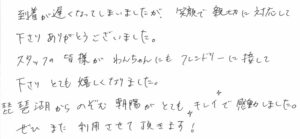 到着が遅くなってしまいましたが、笑顔で親切に対応して
下さりありがとうございました。
スタッフの皆様がわんちゃんにもフレンドリーに接して
下さりとても嬉しくなりました。
琵琶湖からのぞむ朝陽がとてもキレイで感動しました。
ぜひまた利用させて頂きます！